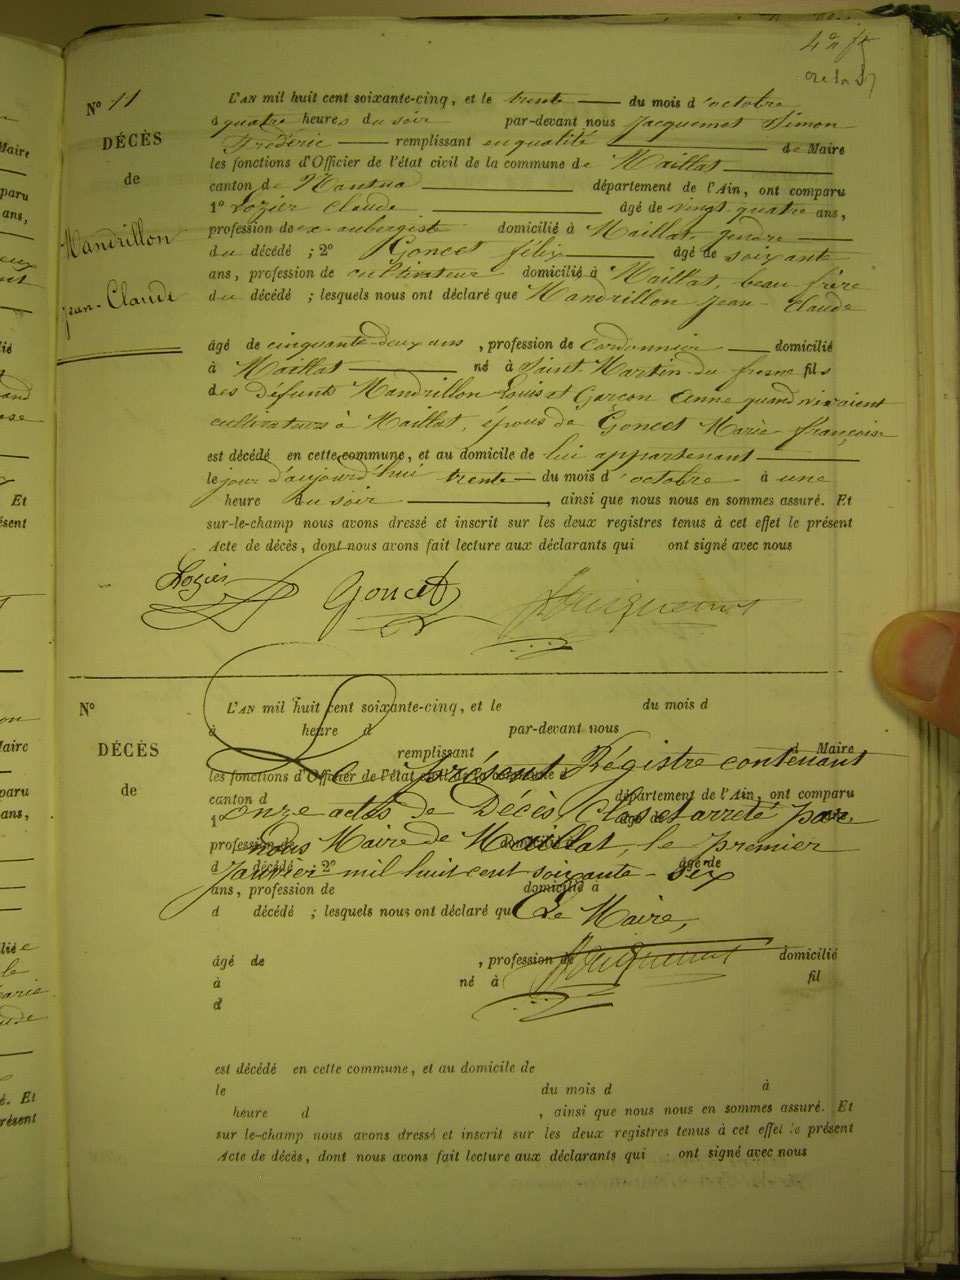 N° 11
DÉCÈS
de
Mandrillon
Jean-Claude
L'AN mil huit cent soixante-cinq, et le trente du mois d'octobre
à quatre heures du soir par-devant nous Jacquemet Simon
Frédéric remplissant en qualité de Maire
les fonctions d'Officier de l'état civil de la commune de Maillat
canton de Nantua département de l'Ain, ont comparu
1° Lozier Claude âgé de vingt quatre ans,
profession de ex-aubergiste domicilié à Maillat gendre
du décédé ; 2° Goncet félix âgé de soixante
ans, profession de cultivateur domicilié à Maillat, beau frère
du décédé ; lesquels nous ont déclaré que Mandrillon Jean-Claude
âgé de cinquante-deux ans, profession de Cordonnier domicilié
à Maillat né à Saint Martin du fresne fils
des défunts Mandrillon Louis et Garçon Anne quand vivaient
cultivateurs à Maillat, époux de Goncet Marie françoise
est décédé en cette commune, et au domicile de lui appartenant
le jour d'aujourd'hui trente du mois d'octobre à une
heure du soir, ainsi que nous nous en sommes assuré. Et
sur-le-champ nous avons dressé et inscrit sur les deux registres tenus à cet effet le présent
Acte de décès, dont nous avons fait lecture aux déclarants qui ont signé avec nous
Lozier Goncet Jacquemet
N°
DÉCÈS
de
L'AN mil huit cent soixante-cinq, et le du mois d
à heure d par-devant nous
remplissant d Maire
Le présent Régistre contenant
les fonctions d'Officier de l'état civil de la commune d
canton d département de l'Ain, ont comparu
onze actes de Décès Clos et arrêté par
1° âgé de
nous Maire de Maillat, le premier
profession de domicilié
d décédé ; 2° âgé de
Janvier mil huit cent soixante-six
ans, profession de domicilié à
d décédé ; lesquels nous ont déclaré que
Le Maire,
Jacquemet
âgé de , profession de domicilié
à né à fil
d
est décédé en cette commune, et au domicile de
le du mois d à
heure d , ainsi que nous nous en sommes assuré. Et
sur le-champ nous avons dressé et inscrit sur les deux registres tenus à cet effet le présent
Acte de décès, dont nous avons fait lecture aux déclarants qui ont signé avec nous